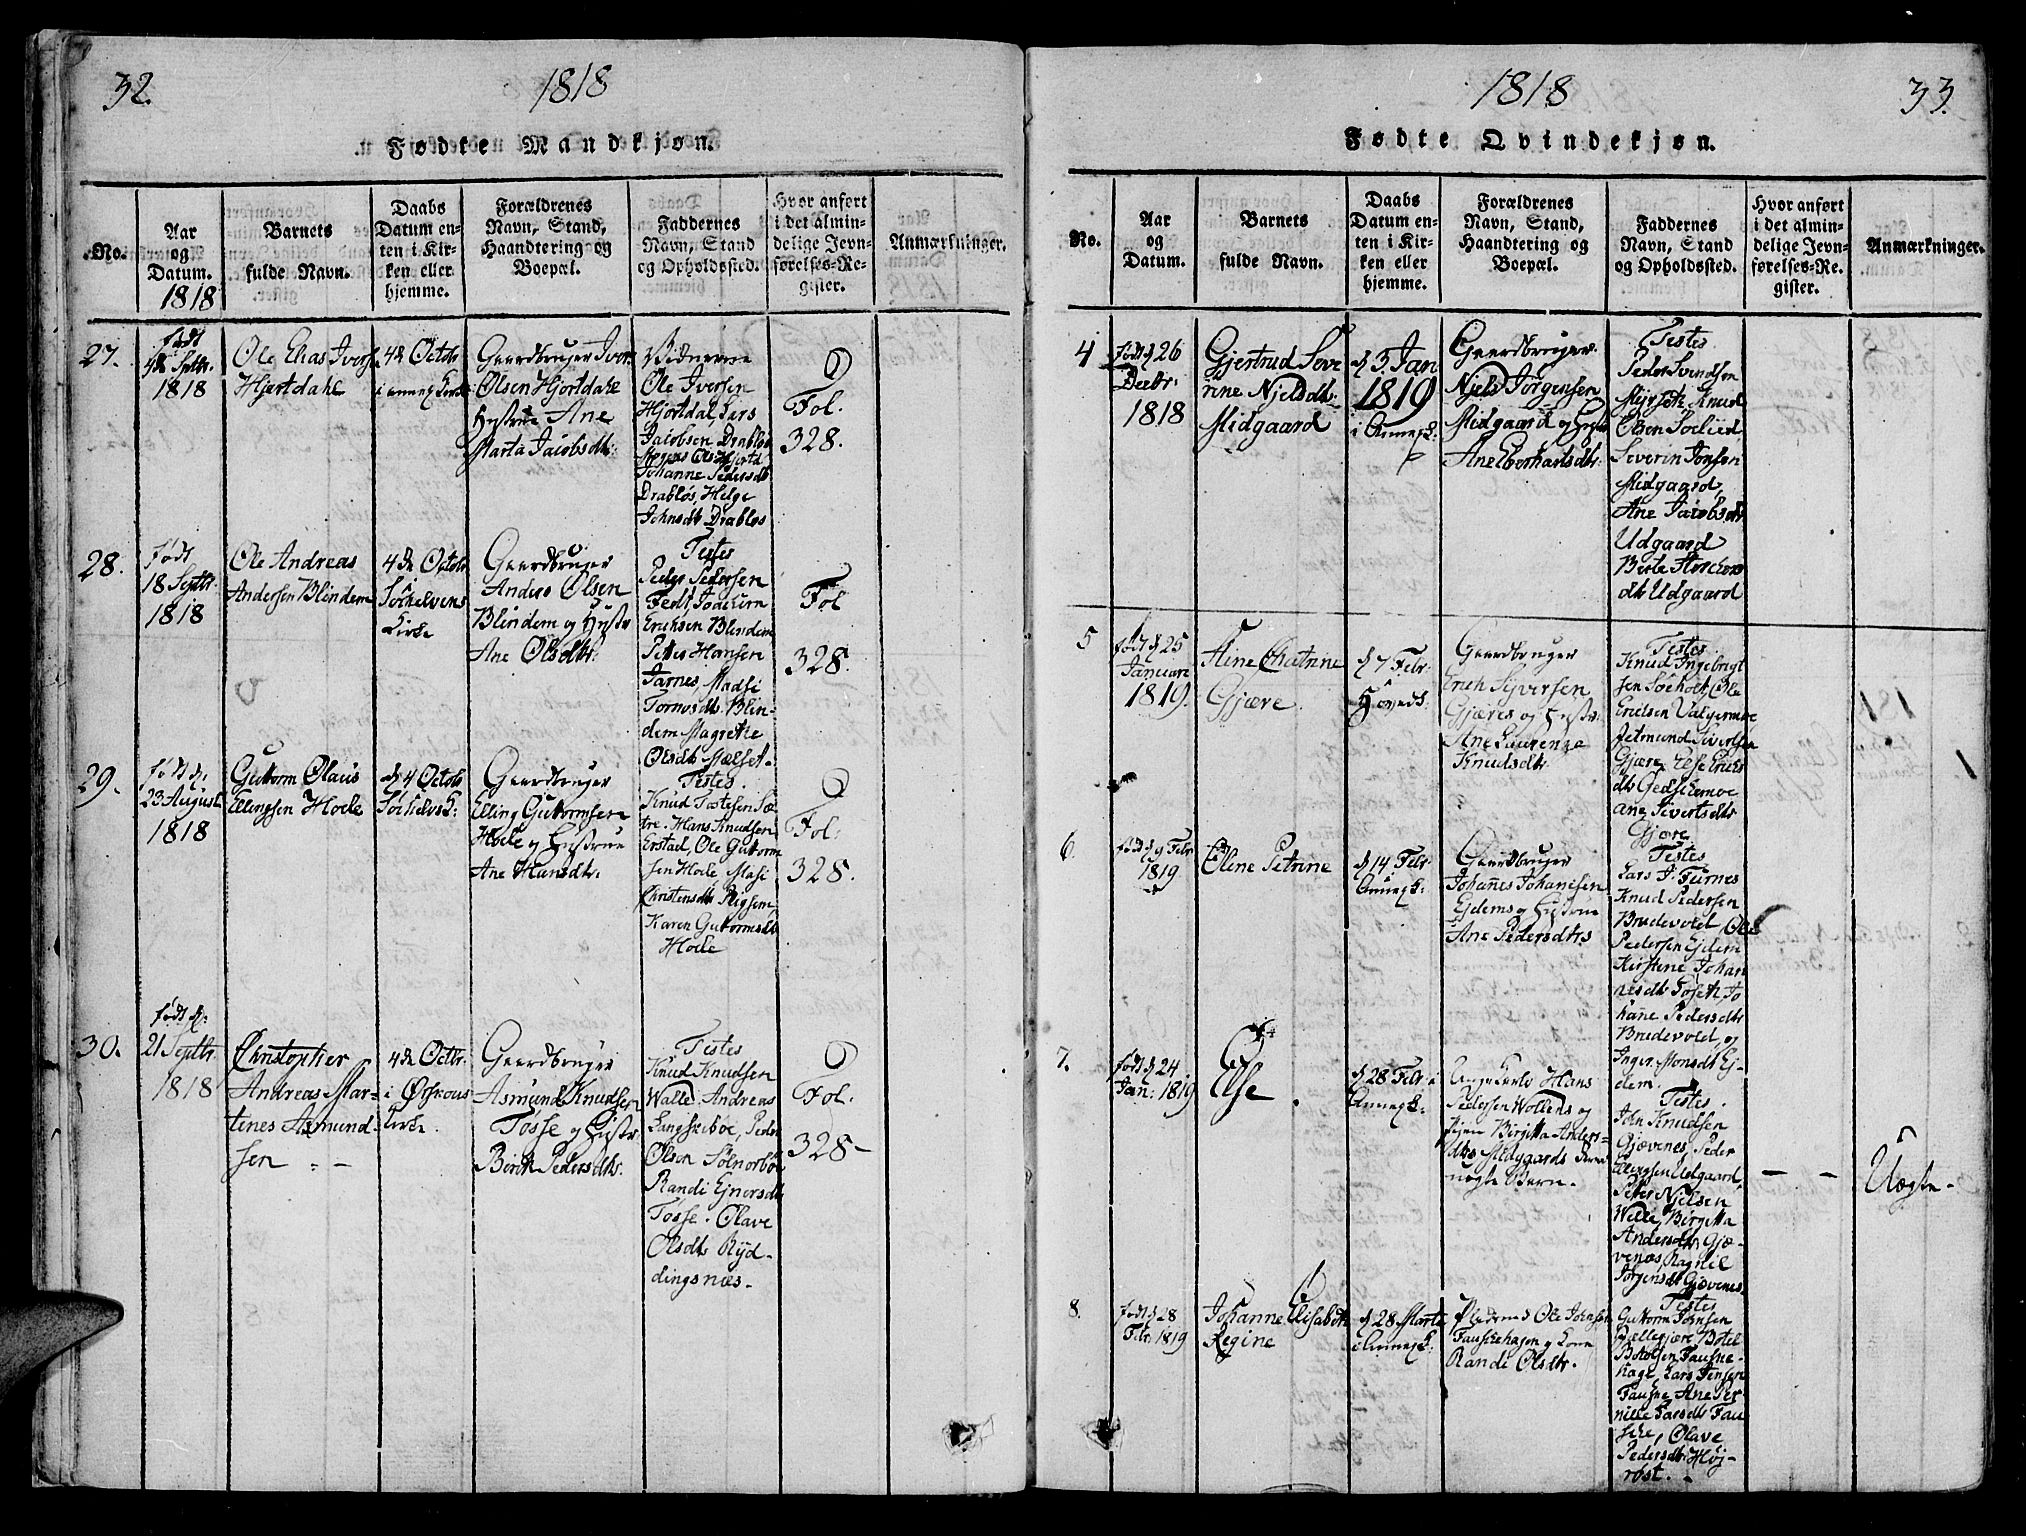 32.
1818
Fødte Mandkjøn.
No.
Aar
og
Datum.
1818
Barnets
fulde Navn.
Daabs
Datum en-
ten i Kir-
ken eller
hjemme.
Forældrenes
Navn, Stand,
Haandtering og
Boepæl.
Faddernes
Navn, Stand
og Opholdssted.
Hvor anført
i det almin-
delige Jevn-
førelses-Re-
gister.
Anmærkninger.
27.
født
4de Septr.
1818
Ole Elias Ivers
Hjortdahl
4de Octobr
i Kirke
Gaardbruger Ivers
Olsen Hjortdahl
Hustrue Ane
Marta Jacobsdtr:
Vidnerne
Ole Iversen
Hjortdal, Lars
Jacobsen Drabløs
Mogens Ols Hjortd
Johanne Pedersdtr
Drabløs, Helge
Johnsdtr Drabløs
Fol.
328.
28.
Født
18 Septbr.
1818
Ole Andreas
Andersen Blindem
4de Octobr
Søckelvens
Kirke
Gaardbruger
Anders Olsen
Blindem og Hustr
Ane Olsdtr:
Testes
Peder Pedersen
Tedt Joachim
Erichsen Blindem
Petter Hansen
Jarnes, Madsi
Tornesdtr Blin-
dem Magrethe
Olsdtr Mælset.
Fol
328.
29.
født d.
23 August
1818
Guttorm Olaus
Ellingsen Hole
d 4 Octob
Søckelvs K:
Gaardbruger
Elling Guttormsen
Hole og Hustrue
Ane Hansdtr.
Testes.
Knud Tostesen Sæ
tre. Hans Knudsen
Erstad, Ole Guttorm
sen Hole Masi
Christensdtr Rigsem
Karen Guttormsdtr
Hole
Fol:
328.
30.
født d.
21 Septbr.
1818
Christopher
Andreas Mar-
tenes Asmund-
sen
4de Octbr.
i Ørskous
Kirke.
Gaardbruger
Asmund Knudsen
Tøsse og Hustr
Birit Pedersdtr.
Testes
Knud Knudsen
Walle. Andreas
Langskibøe, Peder
Olsen Sølnorbøe
Randi Ejnersdtr
Tøsse. Olave
Olsdtr Ryd-
dingsnæs.
Fol.
328-
1818
33.
Fødte Qvindekjøn.
No.
Aar
og
Datum.
Barnets
fulde Navn.
Daabs
Datum en-
ten i Kir-
ken eller
hjemme.
Forældrenes
Navn, Stand,
Haandtering og
Boepæl.
Faddernes
Navn, Stand
og Opholdssted.
Hvor anført
i det almin-
delige Jevn-
førelses-Re.
gister.
Anmærkninger.
4
Født d 26
Decbr:
1818
Gjertrud Seve
rine Njelsdtr.
Midgaard
d 3 Jan
1819
i K:
Gaardbruger.
Njels Jørgensen
Midgaard og Hustr
Ane Eberhartsdtr:
Testes
Peder Svendsen
Myrset, Knud
Olsen Sølied
Severin Jonsen
Midgaard,
Ane Jacobsdtr
Udgaard
Berte
dtr Udgaard
5
født d 25
Januari
1819.
Aine Chatrine
Gjære
d 7 Febr.
Gaardbruger
Erich Syversen
Gjæres og Hustr:
Ane Laurenze
Knudsdtr.
Testes
Knud Ingebrigt
sen Søeholt, Ole
Erichsen Valgermoe
Petmund Sivertsen
Gjære, Else Erichs
dtr Gedschemoe
ane Sivertsdtr
Gjære
6
født d 9 Febr
1819
Elene Petrine
d 14 Febr
K:
Gaardbruger
Johañes Johañsen
Ejdems og Hustrue
Ane Pedersdtrs
Testes
Lars J. Furnes
Knud Pedersen
Brudevold, Ole
Pedersen Ejdem
Kirstine Johan
nesdtr Toseth Jo
hañe Pedersdtr
Brudevold, og
Inger Monsdtr Ej-
dem.
7.
født d 24
Jan: 1819
Else.
d 28 Febr i
K:
Unge Karl Hans
Pedersen Wollens og
Pigen Birgitta Anders-
dtrs Midgaards deres
uægte Barn.
Testes.
John Knudsen
Gjævenes, Peder
Ellingsen Udgaard,
Peter Njelsen
Welle, Birgitta
Andersdtr Gjæ-
venæs, Ragnil
Jørgensdtr Gjævenes.
Uægte.
8.
født d 28
Febr 1819
Johanne Elisabeth
Regine
d 28 Marts
i K:
Ole Johnsen
Fauskehagen og Kone
Randi Olsdtr.
Testes
Guttorm Johnsen
Botel
Botolsen Fauske-
hage, Lars Jensen
Fauske, Ane Per
nille Larsdtr Fau
ske, Olave
Pedersdtr Høj-
røst.